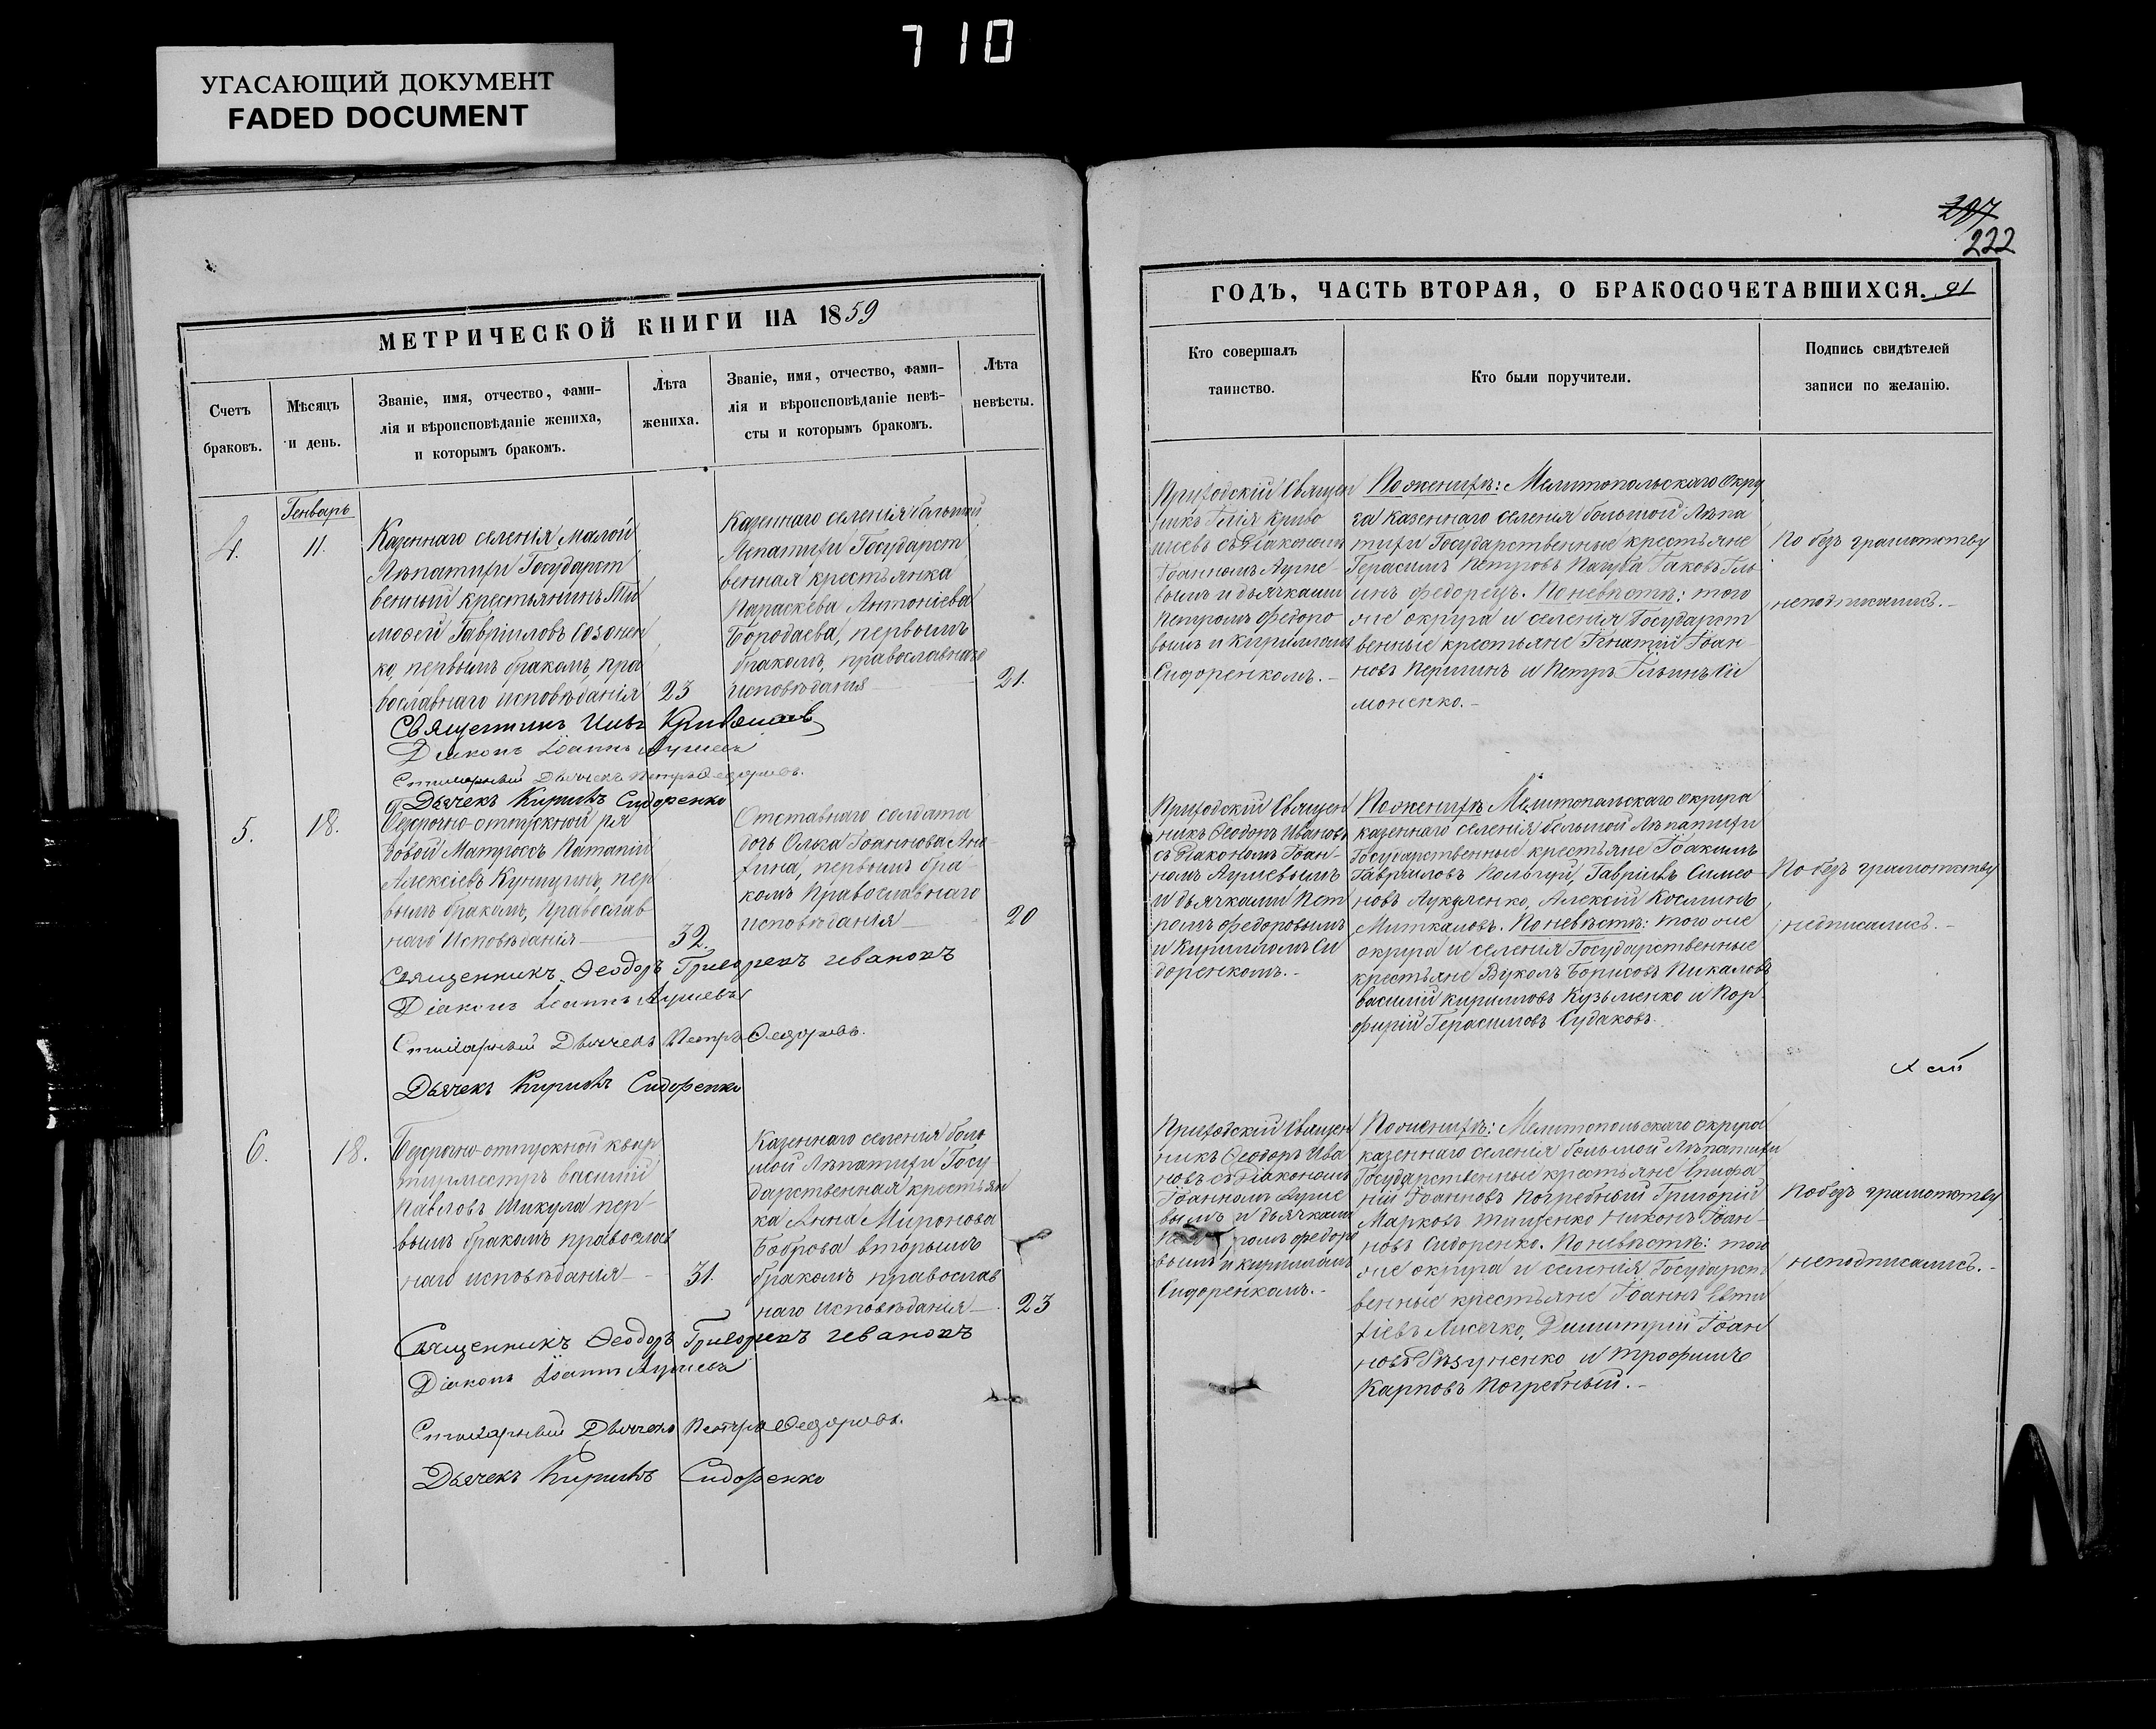 710
УГАСАЮЩИЙ ДОКУМЕНТ
FADED DOCUMENT
207
222
МЕТРИЧЕСКОЙ КНИГИ НА 1859
Счетъ
браковъ.
Мѣсяцъ
и день.
Званіе, имя, отчество, фами-
лія и вѣроисповѣданіе жениха,
и которымъ бракомъ.
Лѣта
жениха.
Званіе, имя, отчество, фами-
лія и вѣроисповѣданіе невѣ-
сты и которымъ бракомъ.
Лѣта
невѣсты.
Генварь
4.
11.
Казеннаго селенія Малой
Лѣпатихи Государст
венный крестьянинъ Ти
моѳей Гавріиловъ Созонен
ко, первымъ бракомъ, пра
вославнаго исповѣданія
23
Казеннаго селенія большой
Лѣпатихи Государст
венная крестьянка
Параскева Антоніева
Бородаева, первымъ
бракомъ, православнаго
исповѣданія
21.
Священникъ Илья
Діаконъ Іоаннъ
Стихарный Дьячекъ Петръ Ѳедоровъ.
Дьячекъ Кирилъ Сидоренко
5.
18.
Безсрочно-отпускной ря
довой Матросъ
Алексіевъ пер
вымъ бракомъ, Православ
наго Исповѣданія
32.
Отставнаго солдата
дочь Ольга Іоаннова
первымъ бра
комъ Православнаго
исповѣданія
20
Священникъ Ѳеодоръ Ивановъ
Діаконъ Іоаннъ
Стихарный Дьячекъ Петръ Ѳедоровъ.
Дьячекъ Кирилъ Сидоренко
6.
18.
Безсрочно-отпускной квар
тирмистръ Василій
Павловъ Шикула пер
вымъ бракомъ православ
наго исповѣданія
31.
Казеннаго селенія боль
шой Лѣпатихи Госу
дарственная крестьян
ка Анна Миронова
Боброва вторымъ
бракомъ православ
наго Исповѣданія
23
Священникъ Ѳеодоръ Ивановъ
Діаконъ Іоаннъ
Стихарный Дьячекъ Петръ Ѳедоровъ.
Дьячекъ Кирилъ Сидоренко
ГОДЪ, ЧАСТЬ ВТОРАЯ, О БРАКОСОЧЕТАВШИХСЯ. 91
Кто совершалъ
таинство.
Кто были поручители.
Подпись свидѣтелей
записи по желанію.
Приходскій Священ
никъ Илія Криво
шеевъ съ Діакономъ
Іоанномъ
вымъ и дьячками
Петромъ Федоро
вымъ и Кирилломъ
Сидоренкомъ.
По женихѣ: Мелитопольскаго Окру
га казеннаго селенія большой Лѣпа
тихи Государственные крестьяне
Герасимъ Петровъ Пагуба Іаковъ Иль
инъ Федорецъ. По невѣстѣ: того
же округа и селенія Государст
венные крестьяне Игнатій Іоан
новъ Першинъ и Петръ Ильинъ Си
моненко.
По безъ грамотству
неподписались.
Приходскій Священ
никъ Ѳеодоръ Ивановъ
съ Діакономъ Іоан-
номъ
и дьячками Пет
ромъ Федоровымъ
и Кирилломъ Си
доренкомъ.
По женихѣ Мелитопольскаго округа
казеннаго селенія большой Лѣпатихи
Государственные крестьяне Іоакимъ
Гавріиловъ Гавріилъ Симео
новъ Алексій Косминъ
Миткаловъ. По невѣстѣ: того же
округа и селенія Государственные
крестьяне Вуколъ Борисовъ Пикаловъ
Василій Кирилловъ Кузьменко и Пор
фирій Герасимовъ Судаковъ.
По безъ грамотству
Приходскій Священ
никъ Ѳеодоръ Ива
новъ съ Діакономъ
Іоанномъ
вымъ и дьячками
ромъ Федоро
вымъ и Кирилломъ
Сидоренкомъ.
По женихѣ: Мелитопольскаго округа
казеннаго селенія большой Лѣпатихи
Государственные крестьяне Епифа
ній Іоанновъ Погребный Григорій
Марковъ Тищенко Никонъ Іоан-
новъ Сидоренко. По невѣстѣ: того
же округа и селенія Государст
венные крестьяне Іоаннъ Евти
хіевъ Димитрій Іоан
новъ и Трофимъ
Карповъ Погребный.
По безъ грамотству
неподписались.